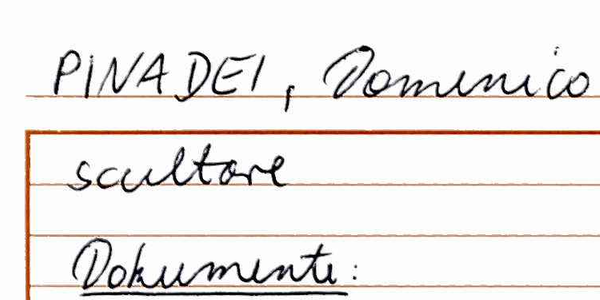 PINADEI, Domenico
scultore
Dokumente: